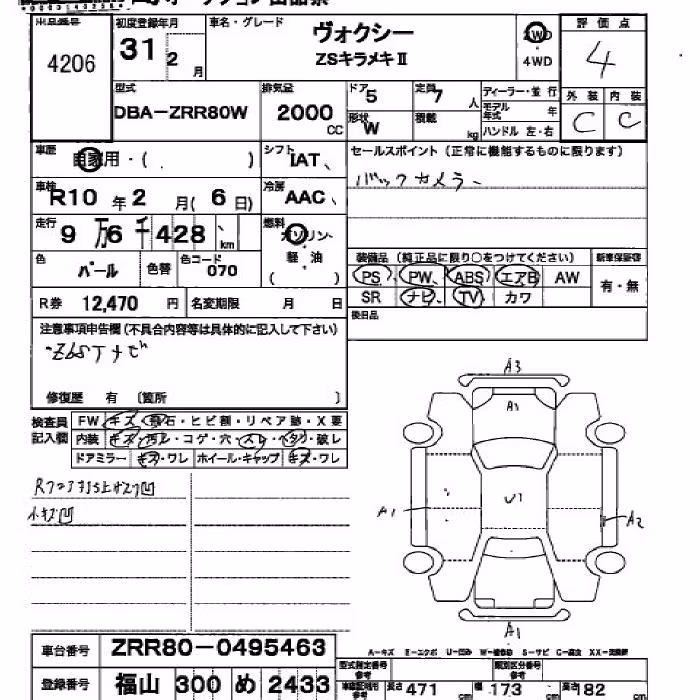 出品番号
4206
初度登録年月
31 2 月
車名・グレード
ヴォクシー
ZSキラメキⅡ
2WD
・
4WD
評価点
4
外装 内装
C C
型式
DBA-ZRR80W
排気量
2000 CC
ドア 5
定員 7 人
形状 W
積載 kg
ディーラー・並行
モデル年式 年
ハンドル 左・右
車歴
自家用・( )
シフト
IAT、
セールスポイント (正常に機能するものに限ります)
バックカメラー
車検
R10 年 2 月( 6 日)
冷房
AAC、
走行
9 万 6 千 428 km
燃料
ガソリン・
軽・油
( )
色
パール
色替
色コード
070
装備品 (純正品に限り○をつけてください)
新車保証書
PS PW ABS エアB AW
SR ナビ TV カワ
有・無
R券 12,470 円
名変期限 月 日
後日品
注意事項申告欄(不具合内容等は具体的に記入して下さい)
修復歴 有 〔箇所 〕
検査員
記入欄
FW キズ・飛石・ヒビ割・リペア跡・X要
内装 キズ・汚レ・コゲ・穴・スレ・ヘタリ・破レ
ドアミラー キズ・ワレ ホイール・キャップ キズ・ワレ
小キズ凹
A3
A1
A1
U1
A2
A1
車台番号 ZRR80-0495463
登録番号 福山 300 め 2433
A-キズ E-エクボ U-凹み W-補修跡 S-サビ C-腐食 XX-交換済
型式指定番号
参考
類別区分番号
参考
長さ 471 cm
幅 173 cm
高さ 182 cm